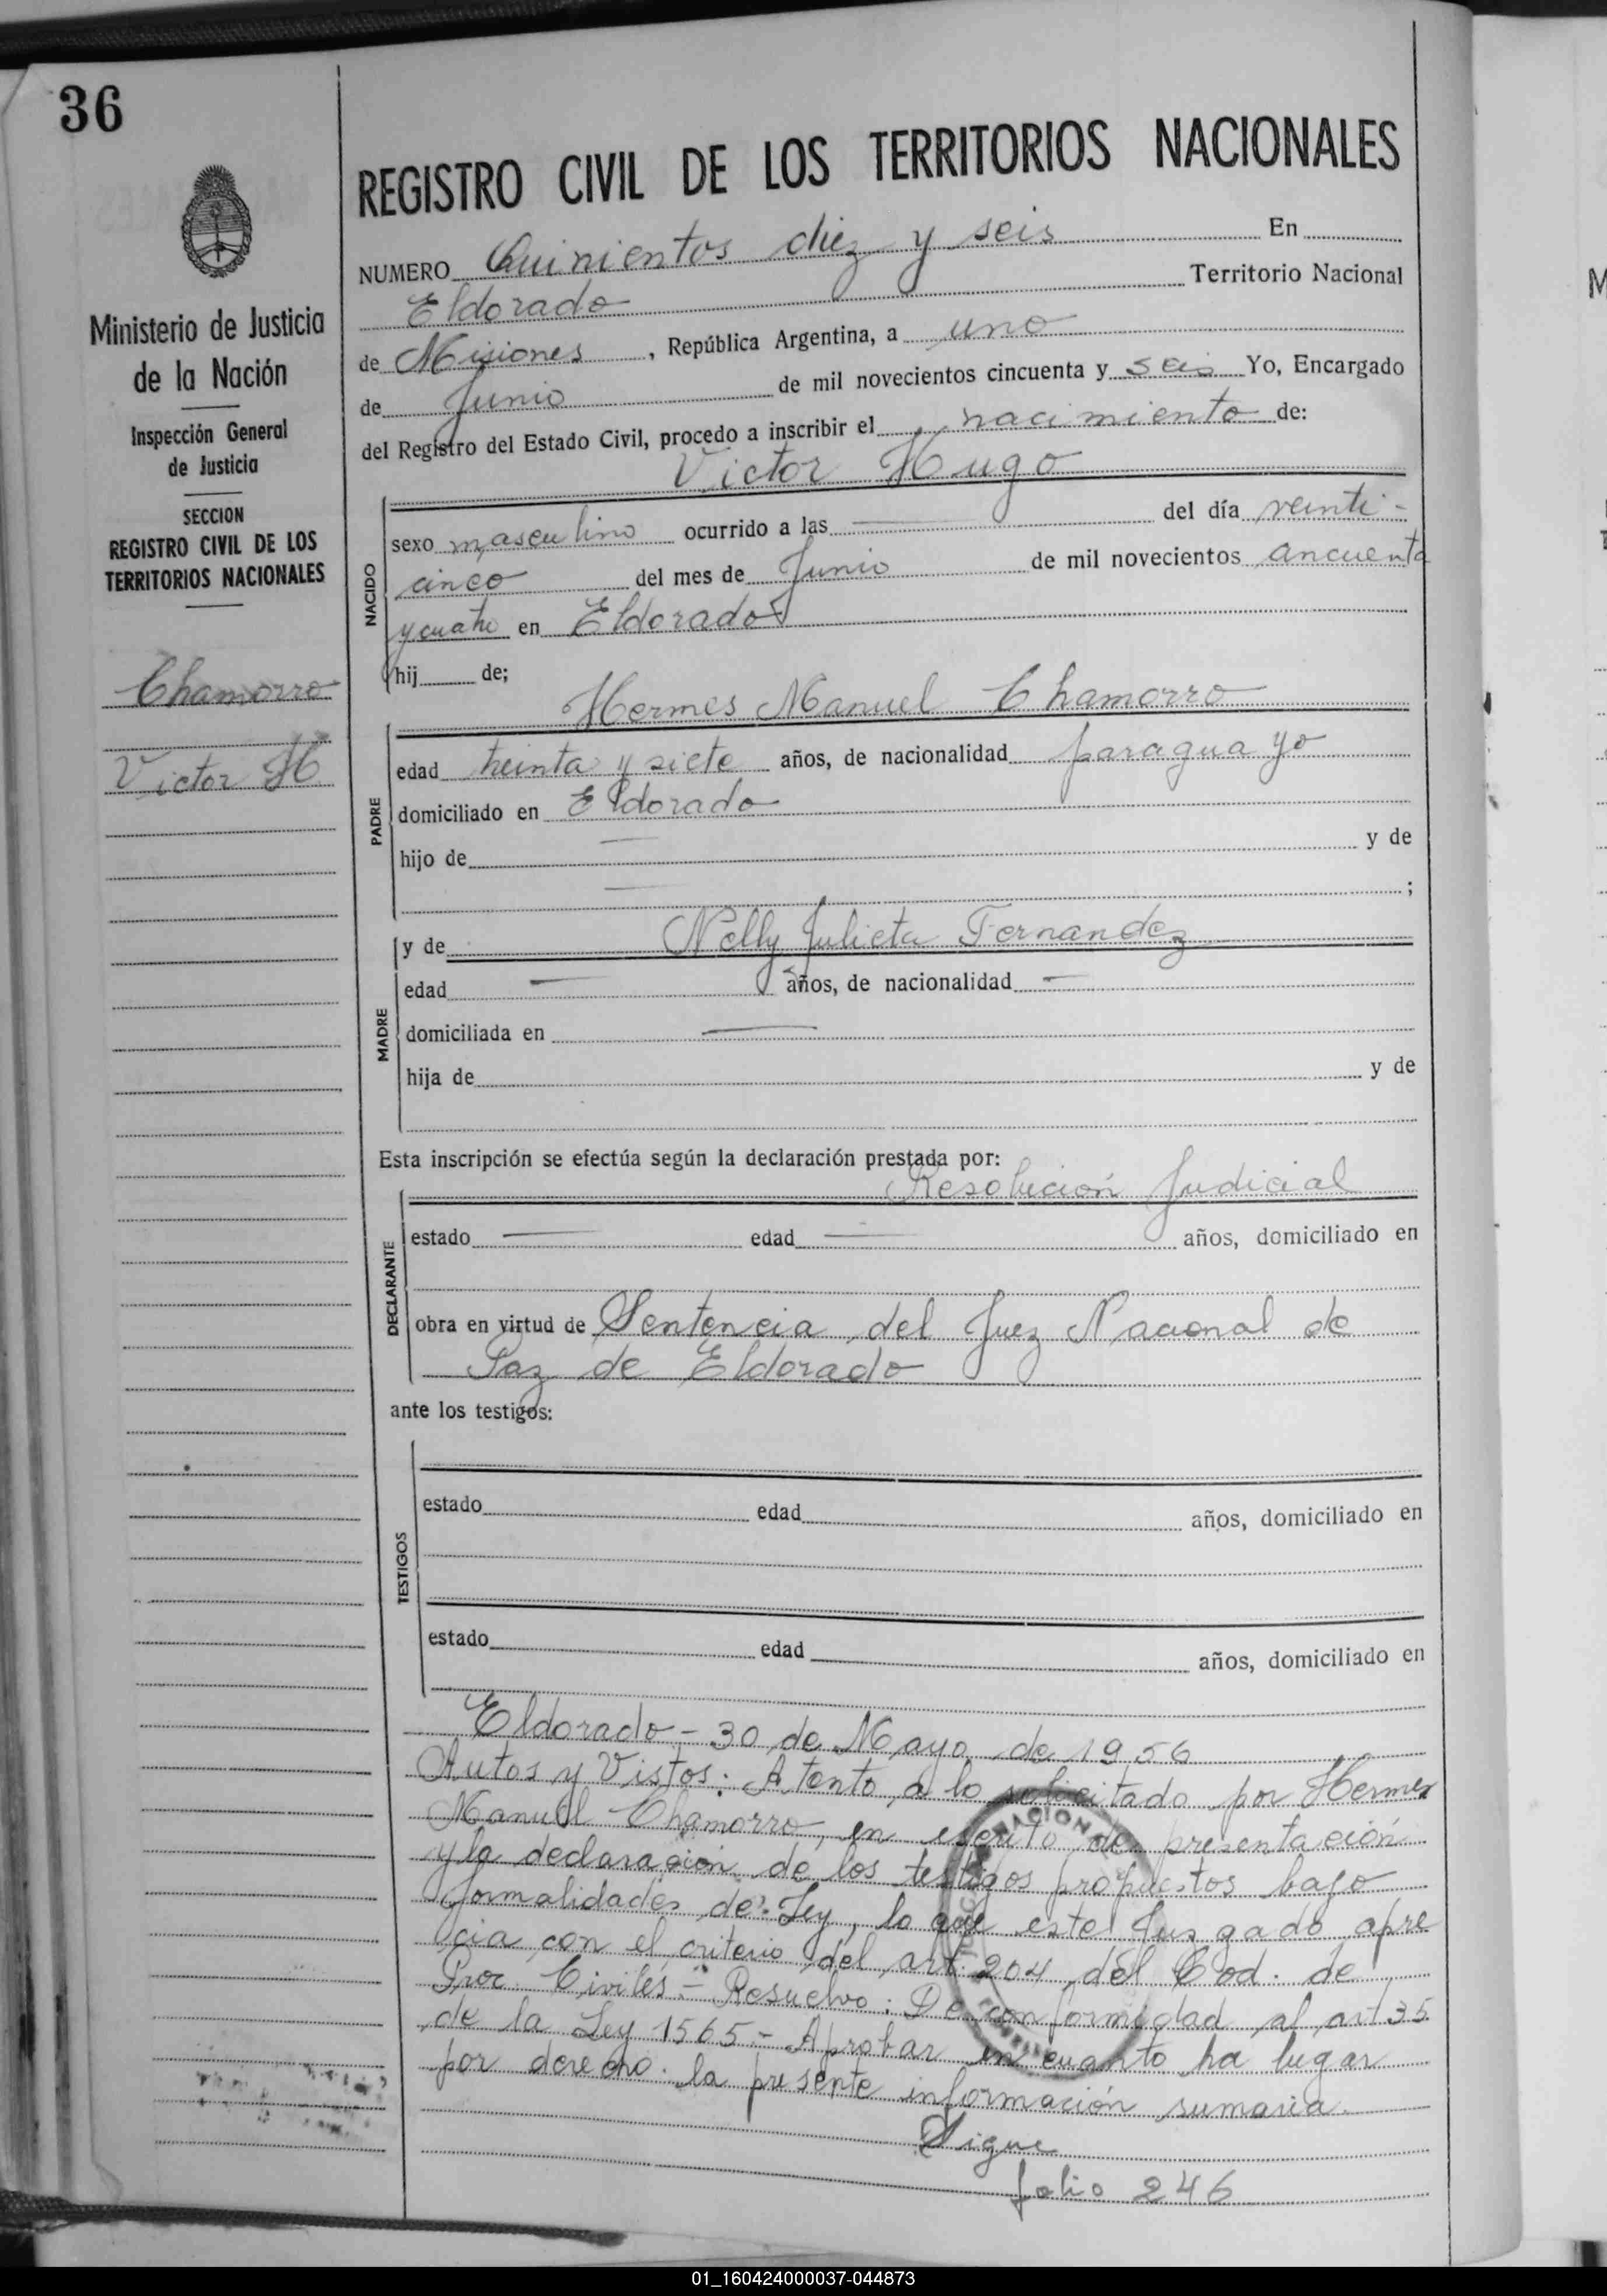 36
Ministerio de Justicia
de la Nación
Inspección General
de Justicia
SECCION
REGISTRO CIVIL DE LOS
TERRITORIOS NACIONALES
Chamorro
Victor H
REGISTRO CIVIL DE LOS TERRITORIOS NACIONALES
NUMERO Quinientos diez y seis En
Eldorado Territorio Nacional
de Misiones, República Argentina, a uno
de Junio de mil novecientos cincuenta y seis Yo, Encargado
del Registro del Estado Civil, procedo a inscribir el nacimiento de:
Victor Hugo
NACIDO
sexo masculino ocurrido a las — del día veinti-
cinco del mes de Junio de mil novecientos cincuenta
y cuatro en Eldorado
hij de;
Hermes Manuel Chamorro
PADRE
edad treinta y siete años, de nacionalidad paraguayo
domiciliado en Eldorado
hijo de — y de
— ;
y de Nelly Julieta Fernandez
MADRE
edad — años, de nacionalidad —
domiciliada en —
hija de y de
Esta inscripción se efectúa según la declaración prestada por:
Resolución Judicial
DECLARANTE
estado — edad — años, domiciliado en
obra en virtud de Sentencia del Juez Nacional de
Paz de Eldorado
ante los testigos:
TESTIGOS
estado edad años, domiciliado en
estado edad años, domiciliado en
Eldorado - 30 de Mayo de 1956
Autos y Vistos: Atento a lo solicitado por Hermes
Manuel Chamorro, en escrito de presentación
y la declaración de los testigos propuestos bajo
formalidades de Ley, lo que este Juzgado apre
cia con el criterio del art. 204 del Cod. de
Proc. Civiles - Resuelvo: De conformidad al art 35
de la Ley 1565 - Aprobar en cuanto ha lugar
por derecho. la presente información sumaria.
Sigue
folio 246
01_160424000037-044873